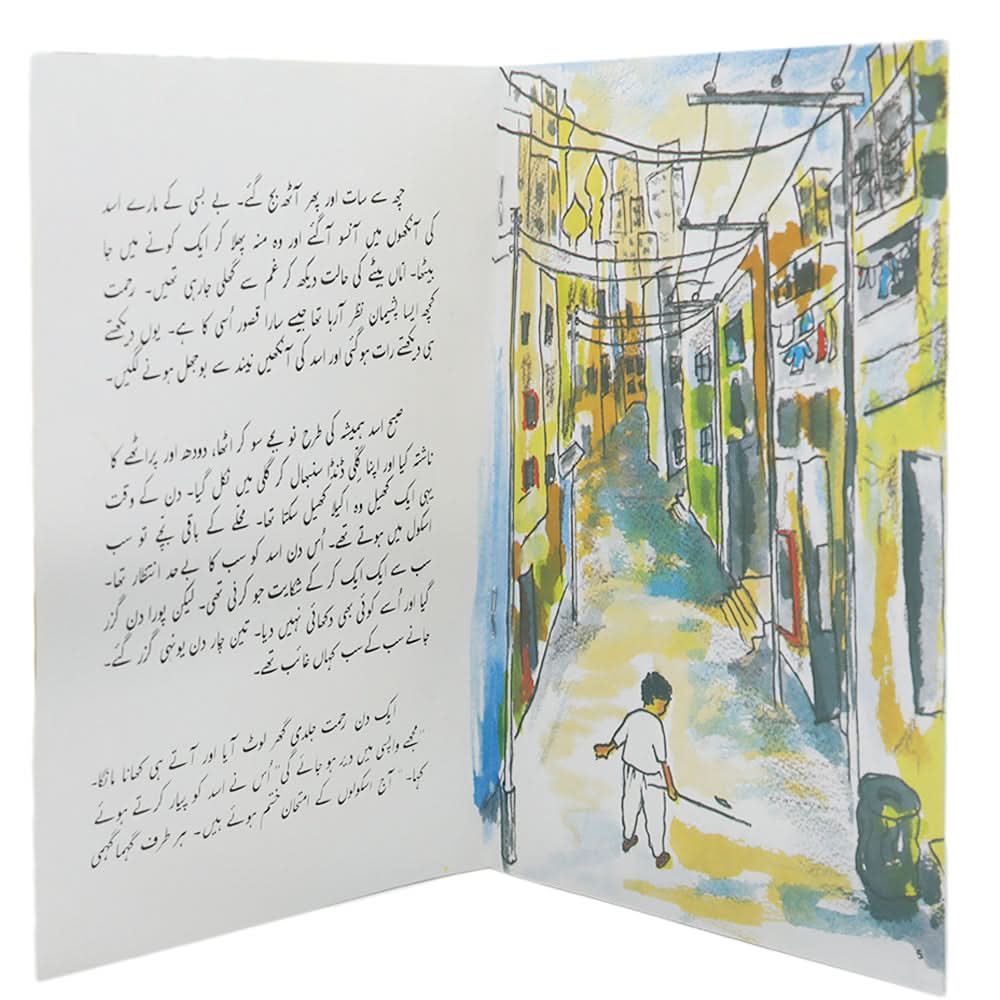 چھ سے سات اور پھر آٹھ بج گئے۔ بے بسی کے مارے اسد
کی آنکھوں میں آنسو آگئے اور وہ منہ پھلا کر ایک کونے میں جا
بیٹھا۔ اماں بیٹے کی حالت دیکھ کر غم سے گھلی جارہی تھیں۔ رحمت
کچھ ایسا پشیمان نظر آرہا تھا جیسے سارا قصور اُسی کا ہے۔ یوں دیکھتے
ہی دیکھتے رات ہو گئی اور اسد کی آنکھیں نیند سے بوجھل ہونے لگیں۔
صبح اسد ہمیشہ کی طرح نو بجے سو کر اٹھا، دودھ اور پراٹھے کا
ناشتہ کیا اور اپنا گلی ڈنڈا سنبھال کر گلی میں نکل گیا۔ دن کے وقت
یہی ایک کھیل وہ اکیلا کھیل سکتا تھا۔ محلے کے باقی بچے تو سب
اسکول میں ہوتے تھے۔ اُس دن اسد کو سب کا بےحد انتظار تھا۔
سب سے ایک ایک کر کے شکایت جو کرنی تھی۔ لیکن پورا دن گزر
گیا اور اُسے کوئی بھی دکھائی نہیں دیا۔ تین چار دن یونہی گزر گئے۔
جانے سب کے سب کہاں غائب تھے۔
ایک دن رحمت جلدی گھر لوٹ آیا اور آتے ہی کھانا مانگا۔
"مجھے واپسی میں دیر ہو جائے گی" اُس نے اسد کو پیار کرتے ہوئے
کہا۔ "آج اسکولوں کے امتحان ختم ہوئے ہیں۔ ہر طرف گہما گہمی
5